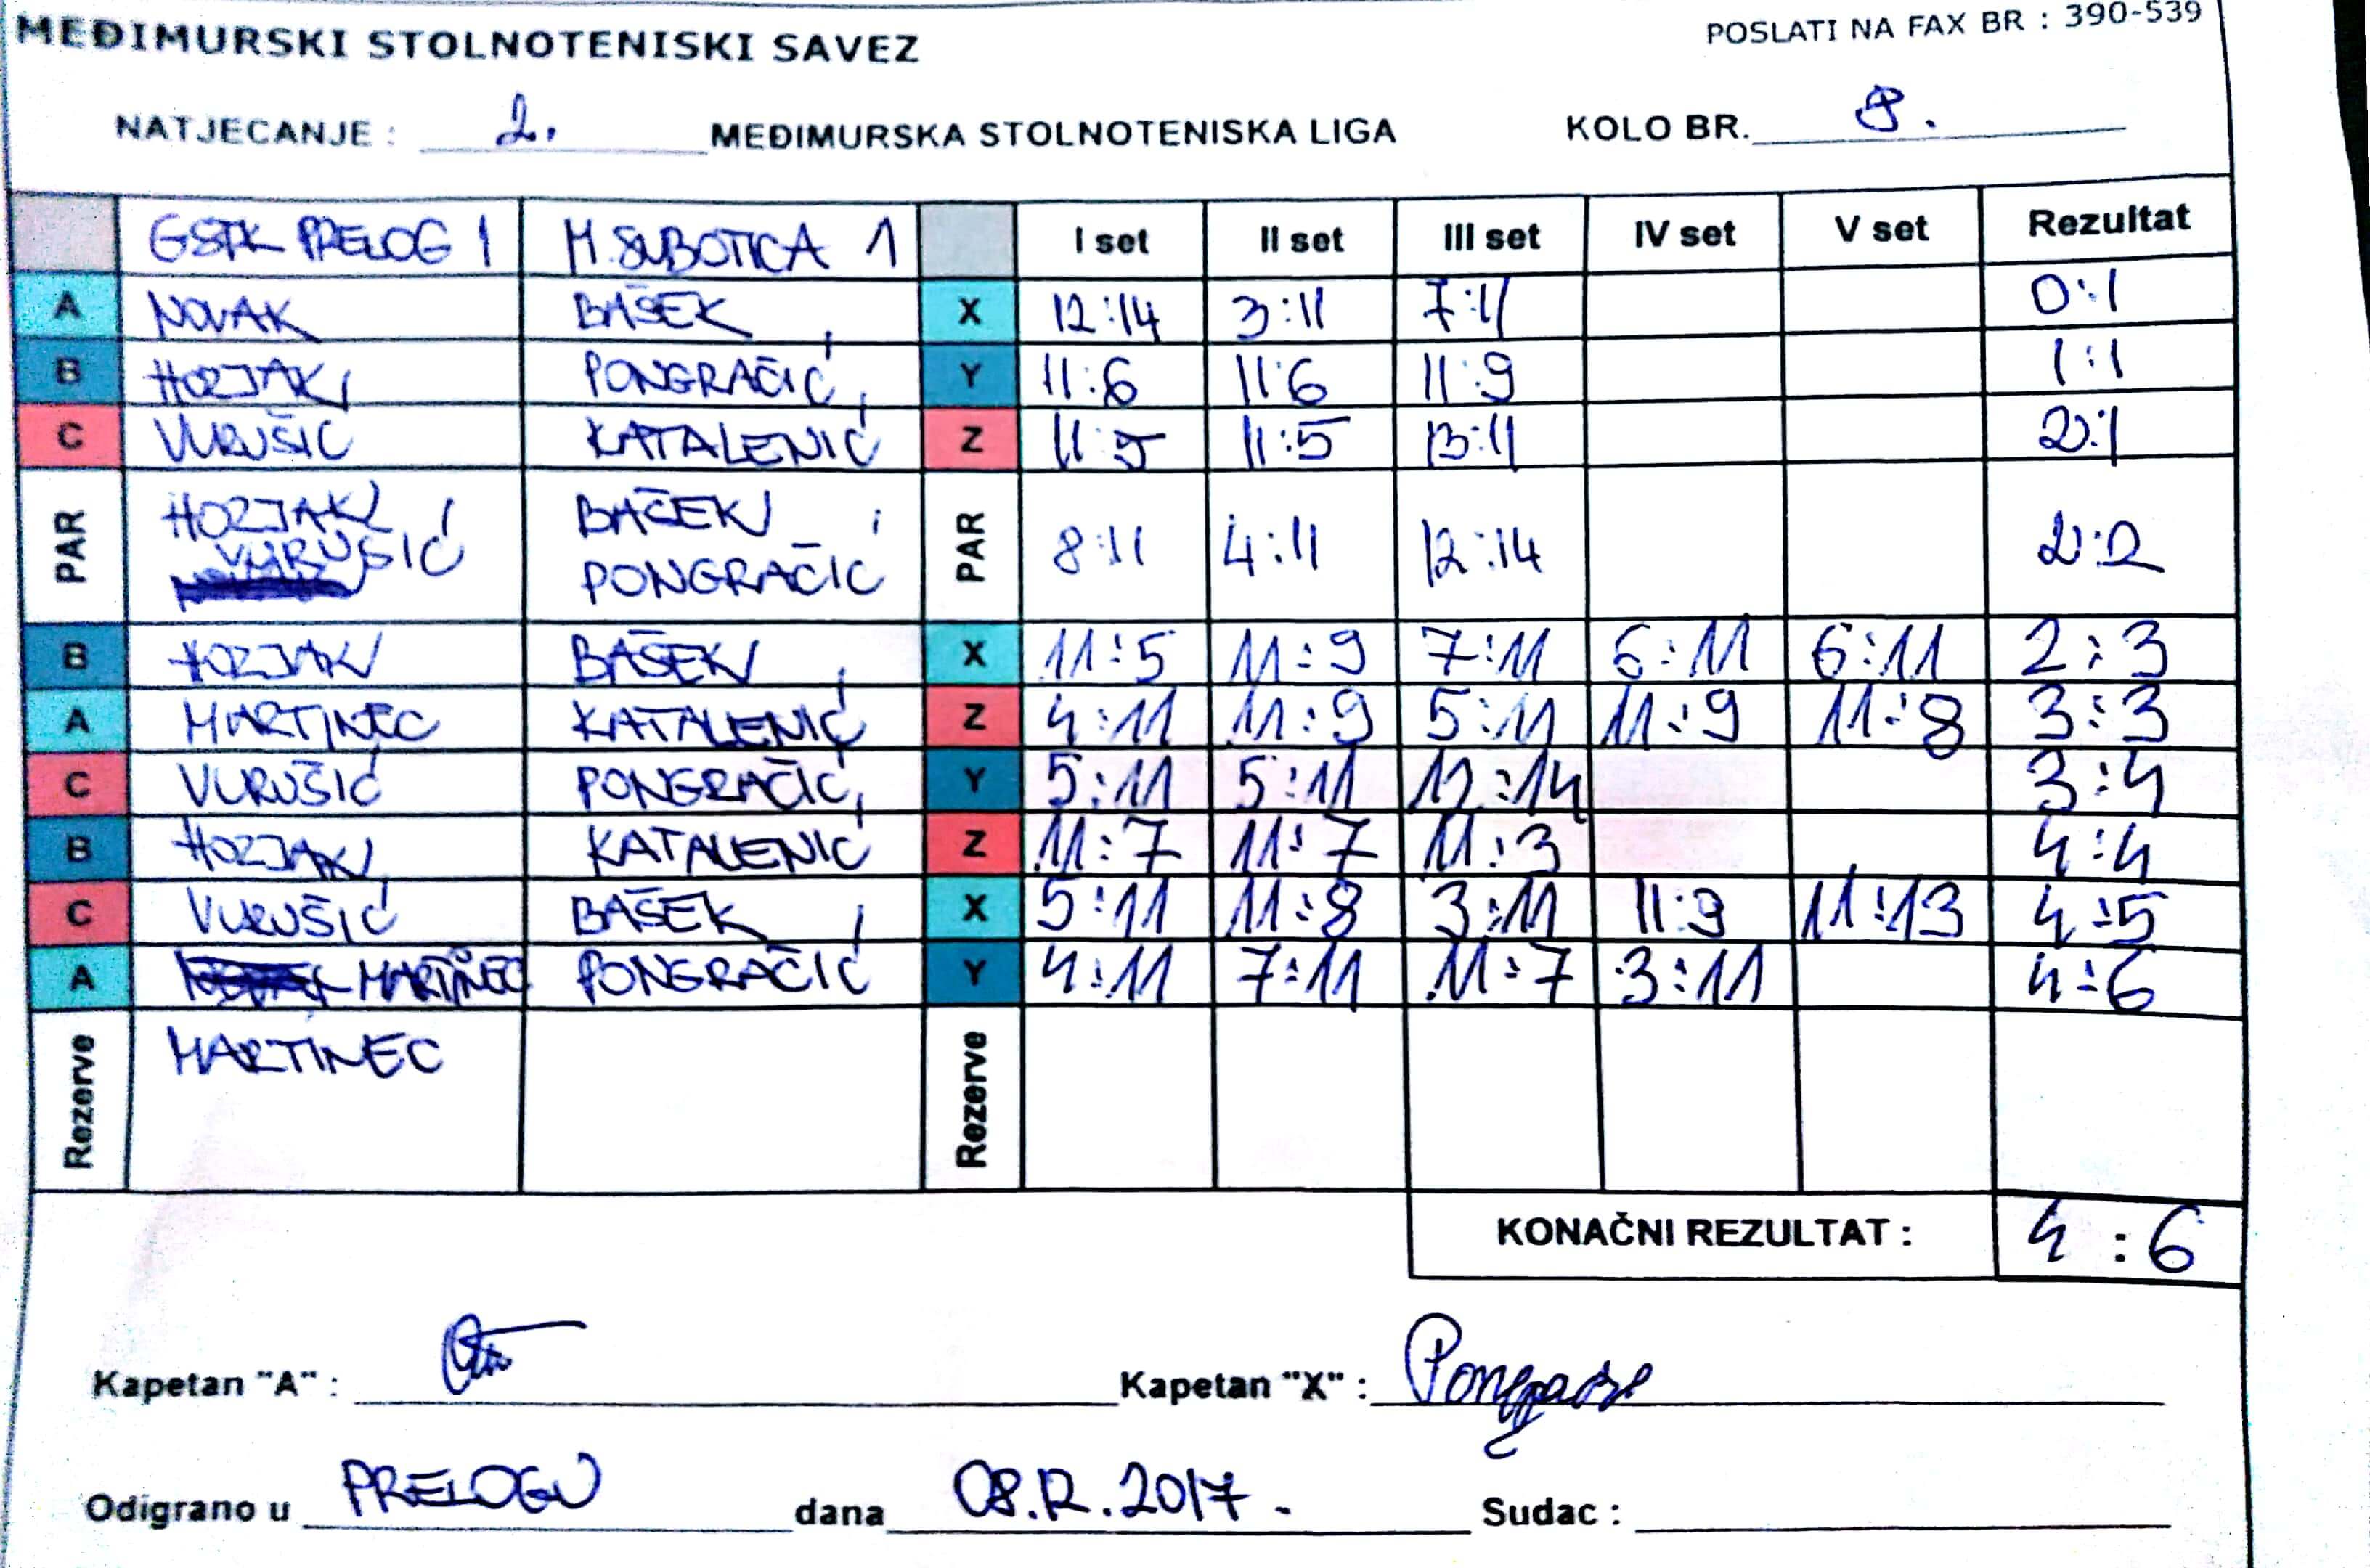 MEĐIMURSKI STOLNOTENISKI SAVEZ POSLATI NA FAX BR : 390-539
NATJECANJE : 2. MEĐIMURSKA STOLNOTENISKA LIGA KOLO BR. 8.
GSTK PRELOG 1 M. SUBOTICA 1 I set II set III set IV set V set Rezultat
A NOVAK BAŠEK X 12:14 3:11 7:11 0:1
B HOZJAK PONGRAČIĆ Y 11:6 11:6 11:9 1:1
C VURUŠIĆ KATALENIĆ Z 11:5 11:5 13:11 2:1
PAR HOZJAK VURUŠIĆ BAŠEK PONGRAČIĆ PAR 8:11 4:11 12:14 2:2
B HOZJAK BAŠEK X 11:5 11:9 7:11 6:11 6:11 2:3
A MARTINEC KATALENIĆ Z 4:11 11:9 5:11 11:9 11:8 3:3
C VURUŠIĆ PONGRAČIĆ Y 5:11 5:11 12:14 3:4
B HOZJAK KATALENIĆ Z 11:7 11:7 11:3 4:4
C VURUŠIĆ BAŠEK X 5:11 11:8 3:11 11:9 11:13 4:5
A MARTINEC PONGRAČIĆ Y 4:11 7:11 11:7 3:11 4:6
Rezerve MARTINEC Rezerve
KONAČNI REZULTAT : 4:6
Kapetan "A" : Kapetan "X" :
Odigrano u PRELOGU dana 08.12.2017. Sudac :